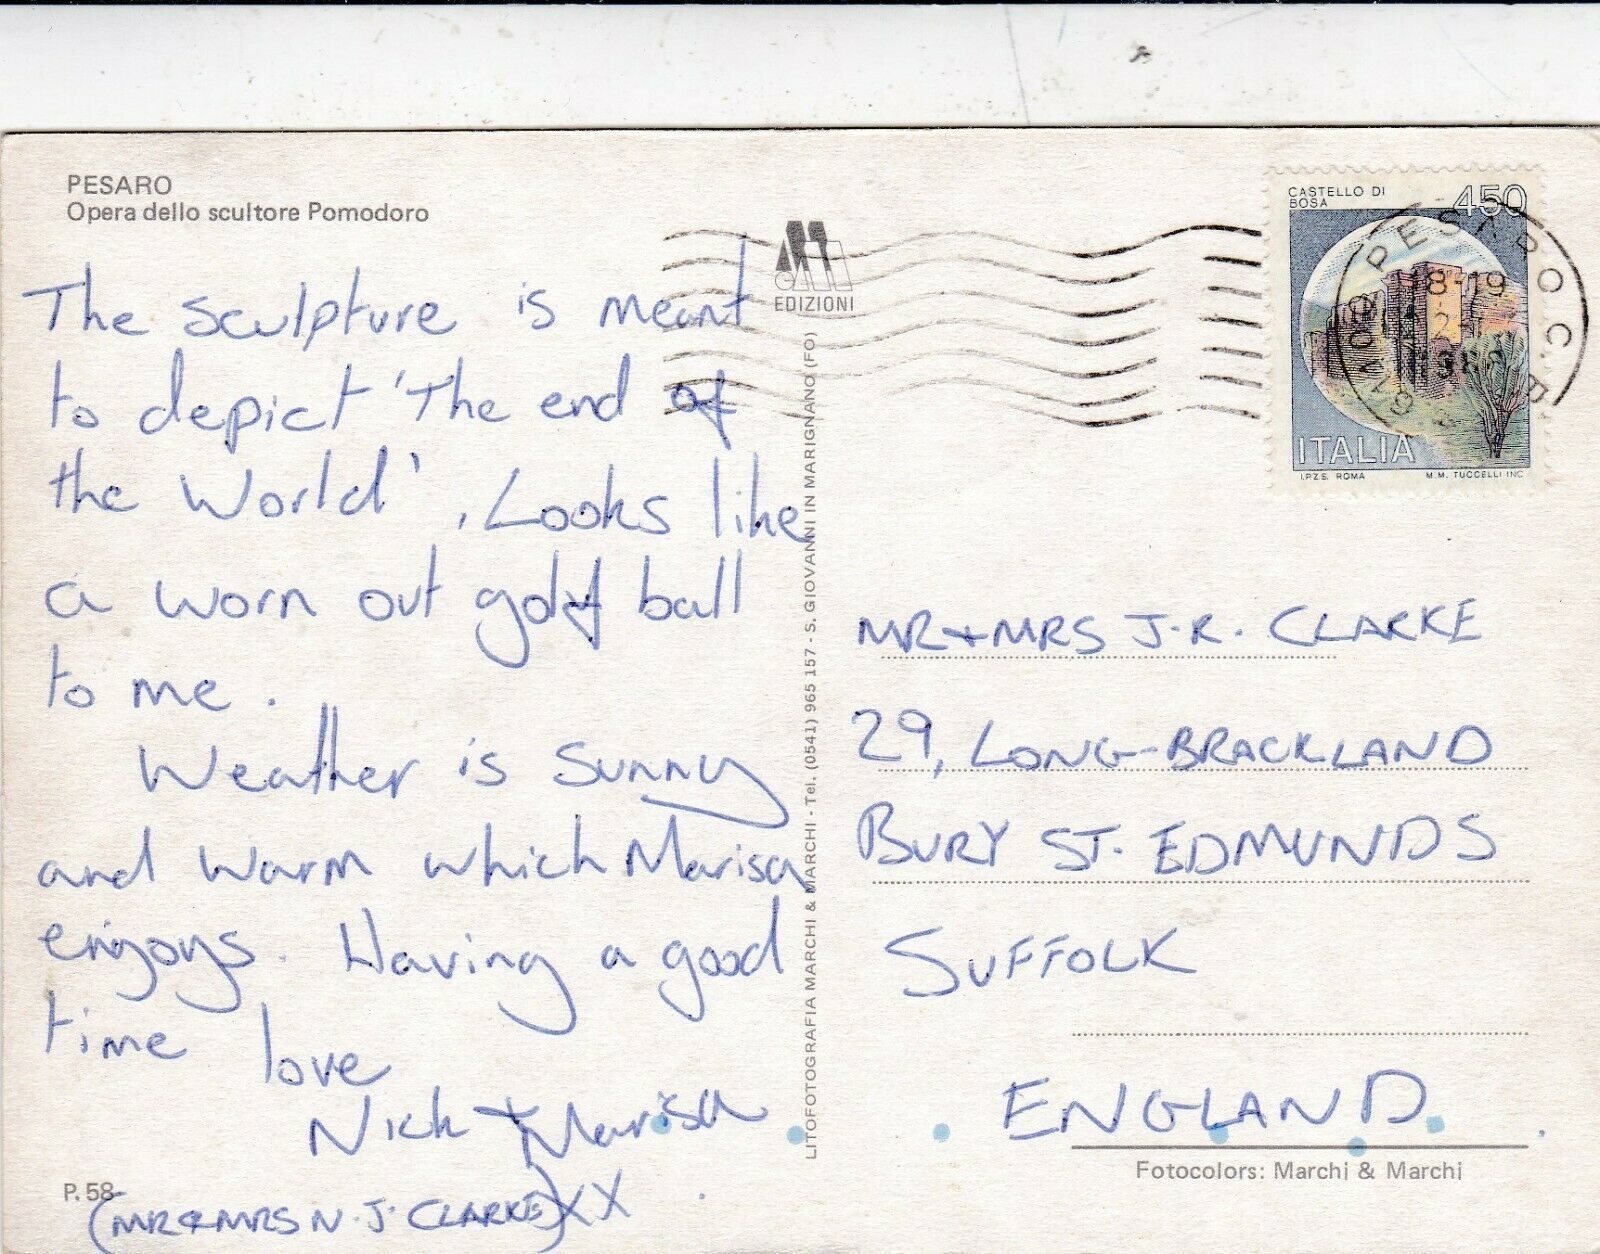 PESARO
Opera dello scultore Pomodoro
The sculpture is meant
to depict 'The end of
the World'. Looks like
a worn out golf ball
to me.
Weather is sunny
and warm which Marisa
enjoys. Having a good
time
love
Nick + Marisa
(MR & MRS N. J. CLARKE) XX
P. 58
EDIZIONI
LITOFOTOGRAFIA MARCHI & MARCHI - Tel. (0541) 965 157 - S. GIOVANNI IN MARIGNANO (FO)
CASTELLO DI
BOSA
450
ITALIA
I.P.Z.S. ROMA M.M. TUCCELLI INC
PESARO C.
18-19
MR + MRS J. R. CLARKE
29, LONG-BRACKLAND
BURY ST. EDMUNDS
SUFFOLK
ENGLAND.
Fotocolors: Marchi & Marchi